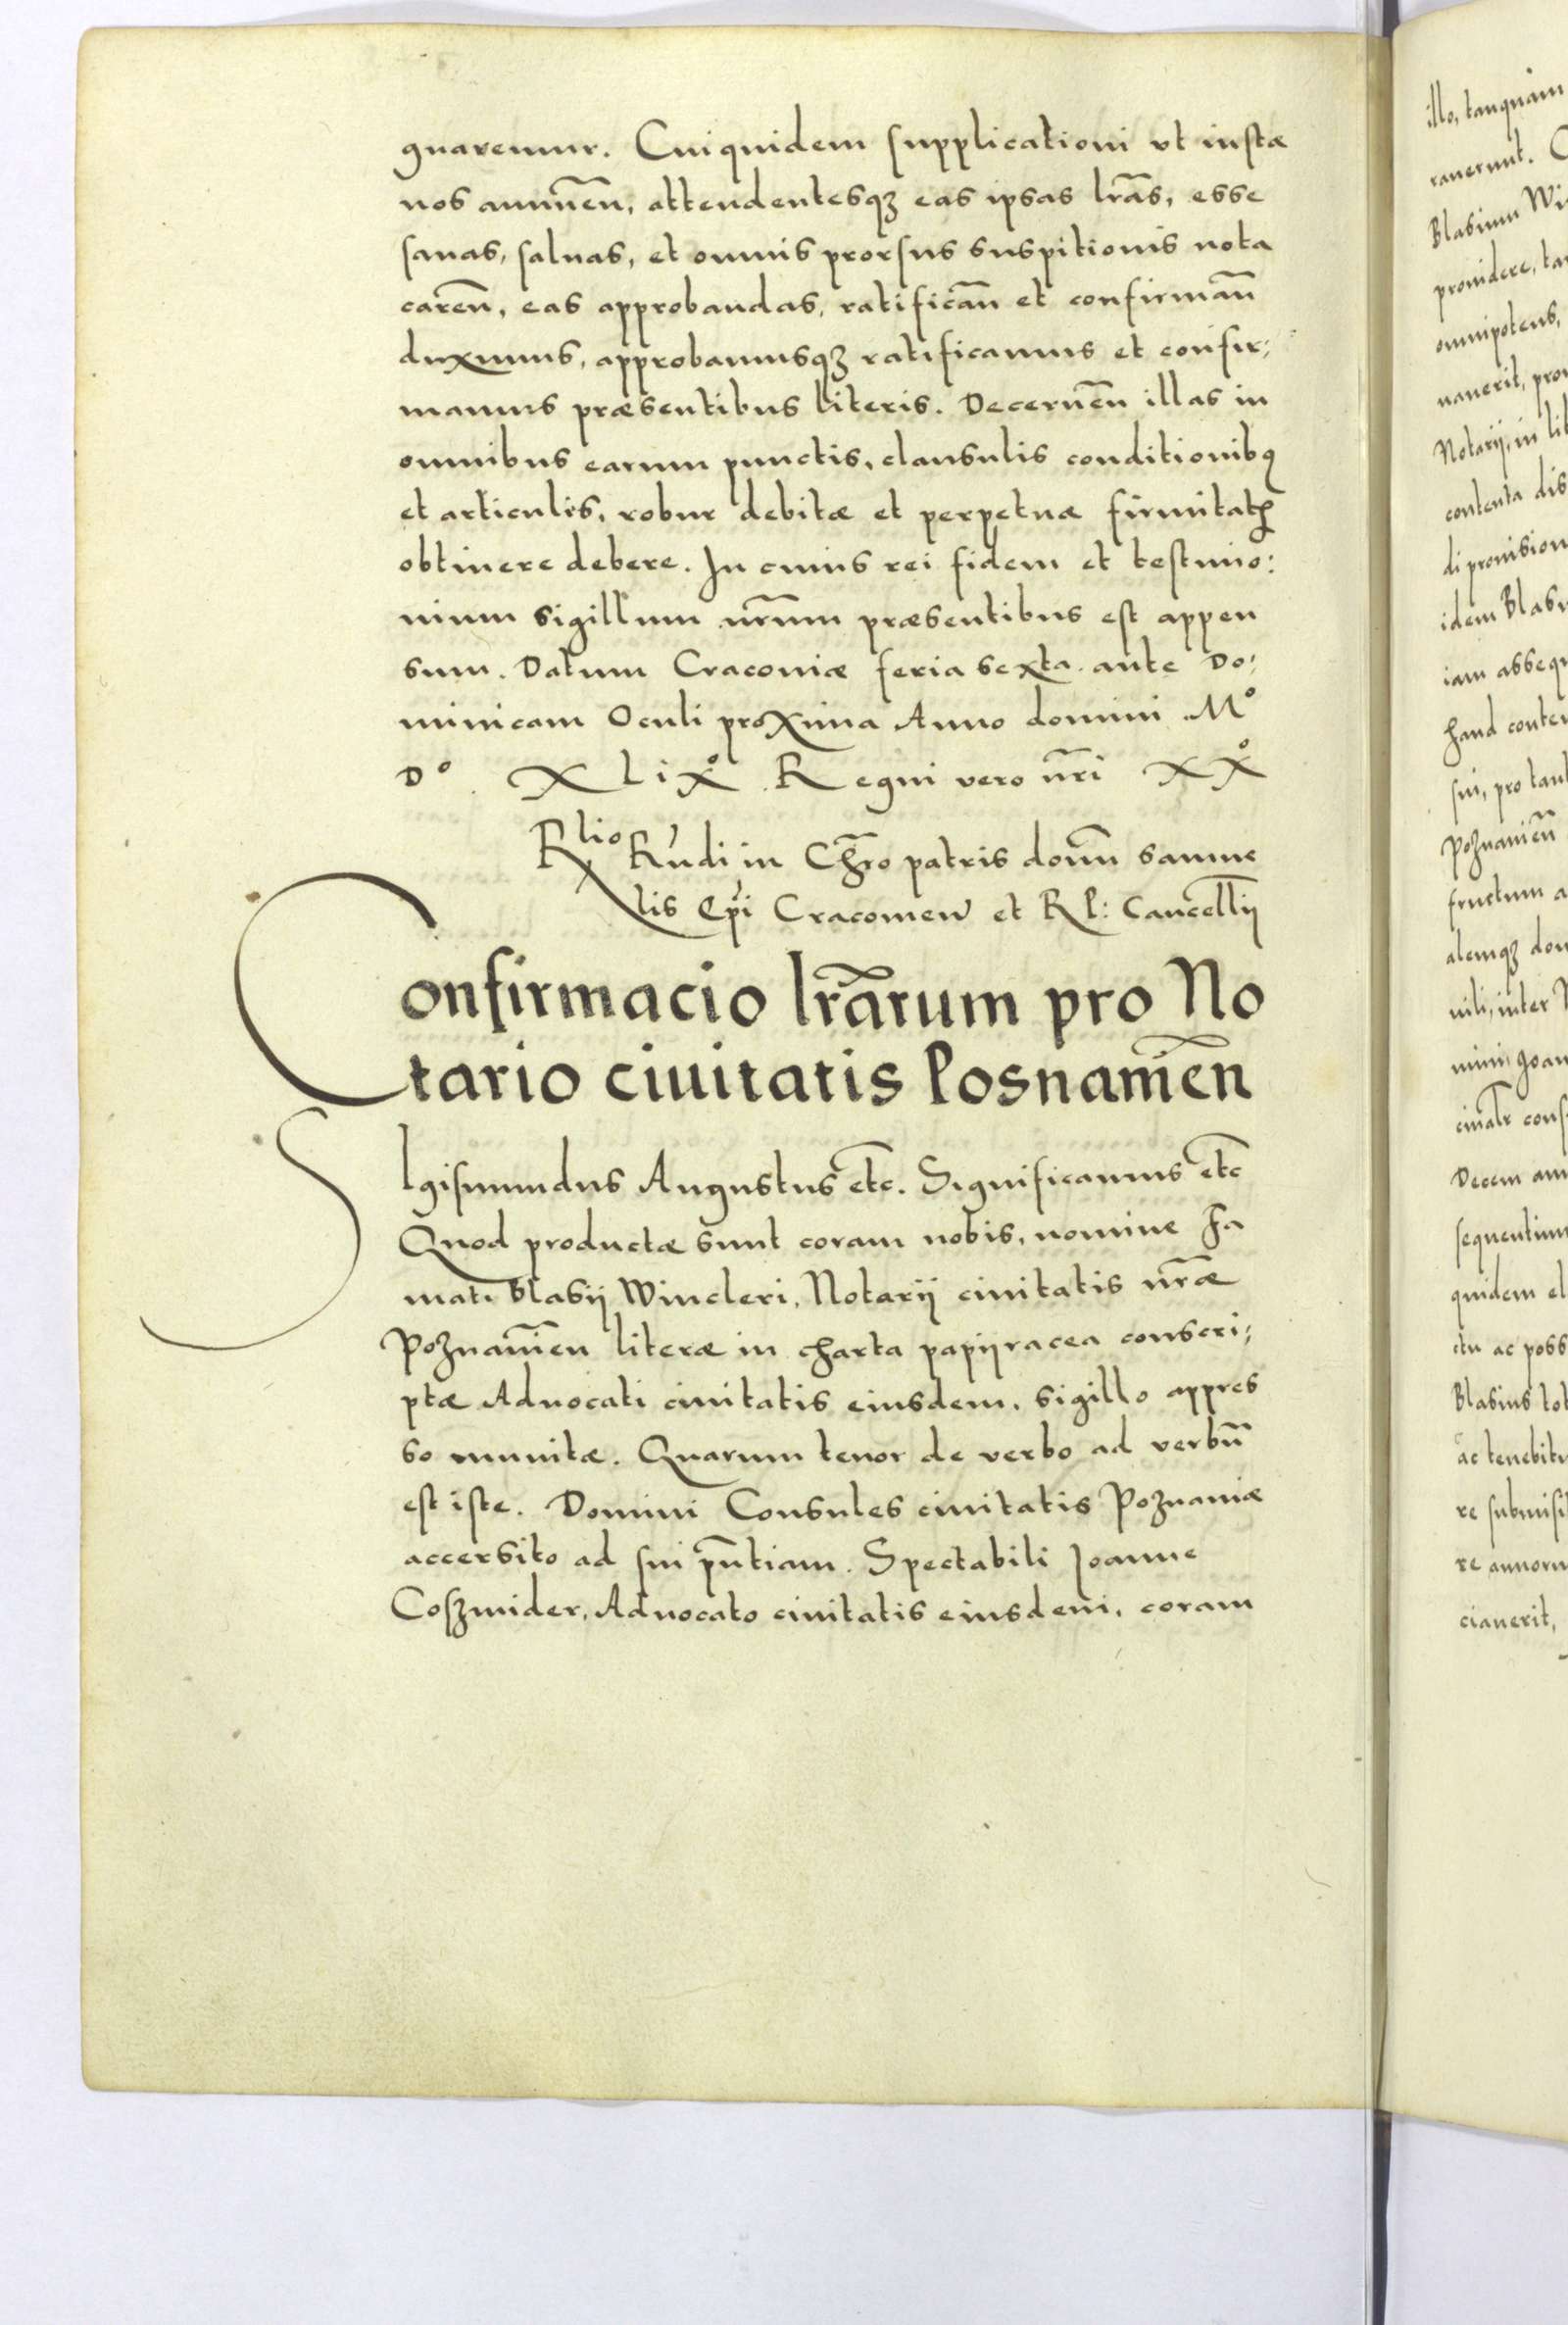 gnaremur. Cuiquidem supplicationi vt iustæ
nos annuen̄, attendentesqꝫ eas ipsas lr̃as, esse
sanas, saluas, et omnis prorsus suspitionis nota
caren̄, eas approbandas, ratifican̄ et confirman̄
duximus, approbamusqꝫ ratificamus et confir:
mamus præsentibus literis. Decernen̄ illas in
omnibus earum punctis, clausulis conditionibꝰ
et articulis, robur debitæ et perpetuæ firmitatꝭ
obtinere debere. In cuius rei fidem et testimo:
nium sigillum nr̃um præsentibus est appen
sum. Datum Cracouiæ feria sexta ante Do:
minicam Oculi proxima Anno domini Mº
Dº. XLiXº. Regni vero nr̃i XXº
Rlio Rndi in Chr̃o patris domn̄ samue
lis Ep̃i Cracouien̄ et R P: Cancellij
Confirmacio lr̃arum pro No
tario ciuitatis Posnamen̄
SIgismundus Augustus etc. Significamus etc
Quod productæ sunt coram nobis, nomine Fa
mati Blasij Wincleri, Notarij ciuitatis nr̃æ
Poznanien̄ literæ in charta papijracea conscri:
ptæ Aduocati ciuitatis eiusdem, sigillo appres
so munitæ. Quarum tenor de verbo ad verbū
est iste. Domini Consules ciuitatis Poznaniæ
accersito ad sui pn̄tiam. Spectabili Joanne
Coszmider, Aduocato ciuitatis eiusdem, coram
illo, tanquam
rauerunt. C
Blasium Wi
prouidere, ta
omnipotens,
nauerit, pro
Notarij, in li
contenta dis
di prouision
idem Blasi
iam assequ
haud conte
sui, pro tan
Poznanien̄
fructum a
alemqꝫ do
uili, inter
mini Joan
cons
Decem an
sequentium
quidem el
ctu ac poss
Blasius tot
ac tenebitu
re submisi
re annoru
ciauerit,